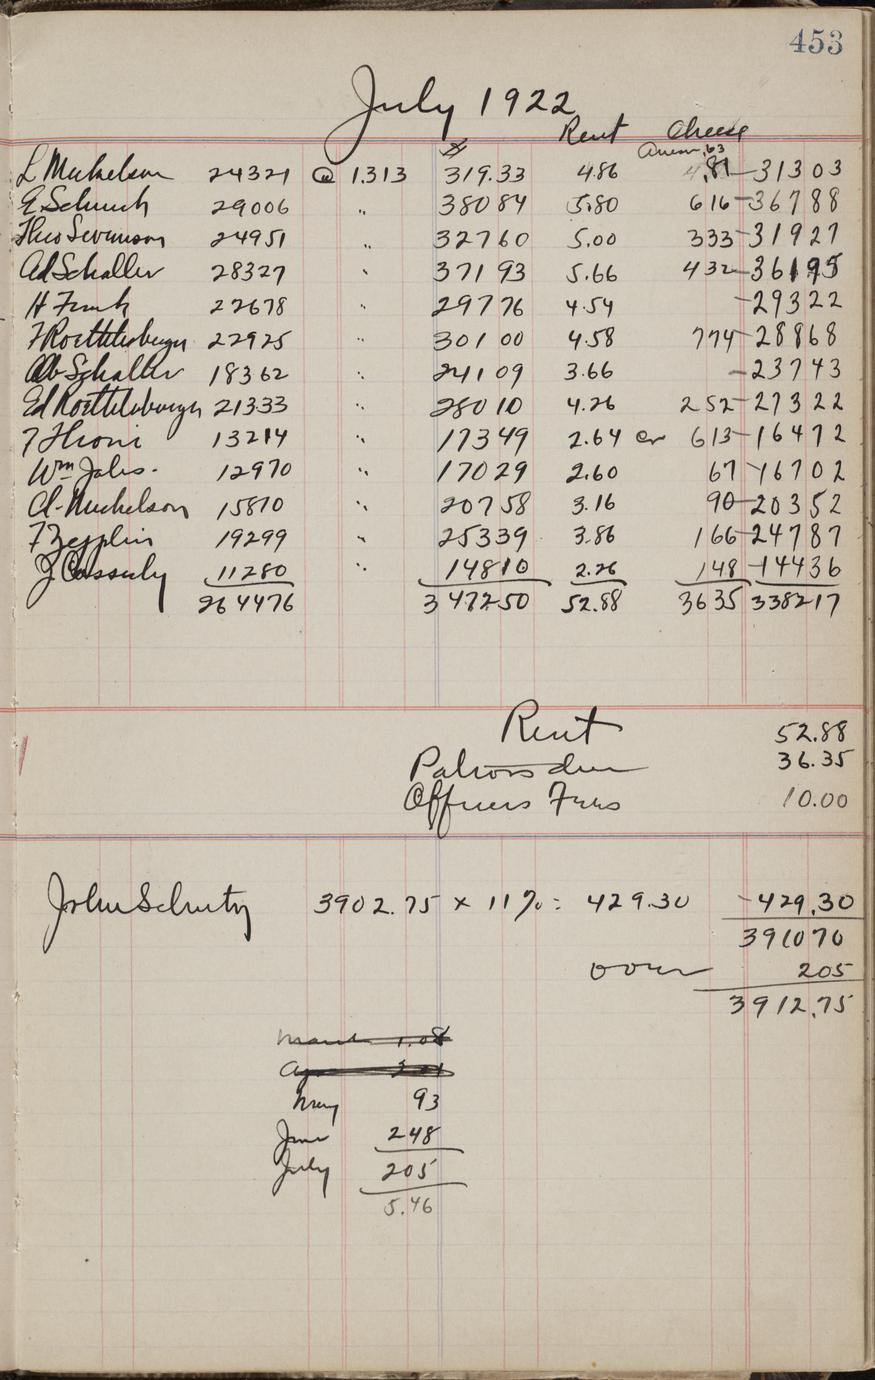 453
July 1922
Rent Cheese
L Mickelson 24321 @ 1.313 319.33 4.86 4.81 - 31303
E. Schuch 29006 " 38084 5.80 616 - 36788
Theo Swenson 24951 " 32760 5.00 333 - 31927
Ad Schaller 28327 " 37193 5.66 432 - 36195
H Funk 22678 " 29776 4.54 - 29322
F Roethlisberger 22925 " 30100 4.58 774 - 28868
Ab Schaller 18362 " 24109 3.66 - 23743
Ed Roethlisberger 21333 " 28010 4.26 252 - 27322
13214 " 17349 2.64 cr 613 - 16472
Wm 12970 " 17029 2.60 67 - 16702
A. Mickelson 15810 " 20758 3.16 90 - 20352
F Zepplin 19299 " 25339 3.86 166 - 24787
J Casserly 11280 " 14810 2.26 148 - 14436
264476 347250 52.88 3635 338217
Rent 52.88
Patrons due 36.35
Officers Fees 10.00
John Schutz 3902.75 x 11% = 429.30 - 429.30
391070
over 205
3912.75
March 1.08
May 93
June 248
July 205
5.46